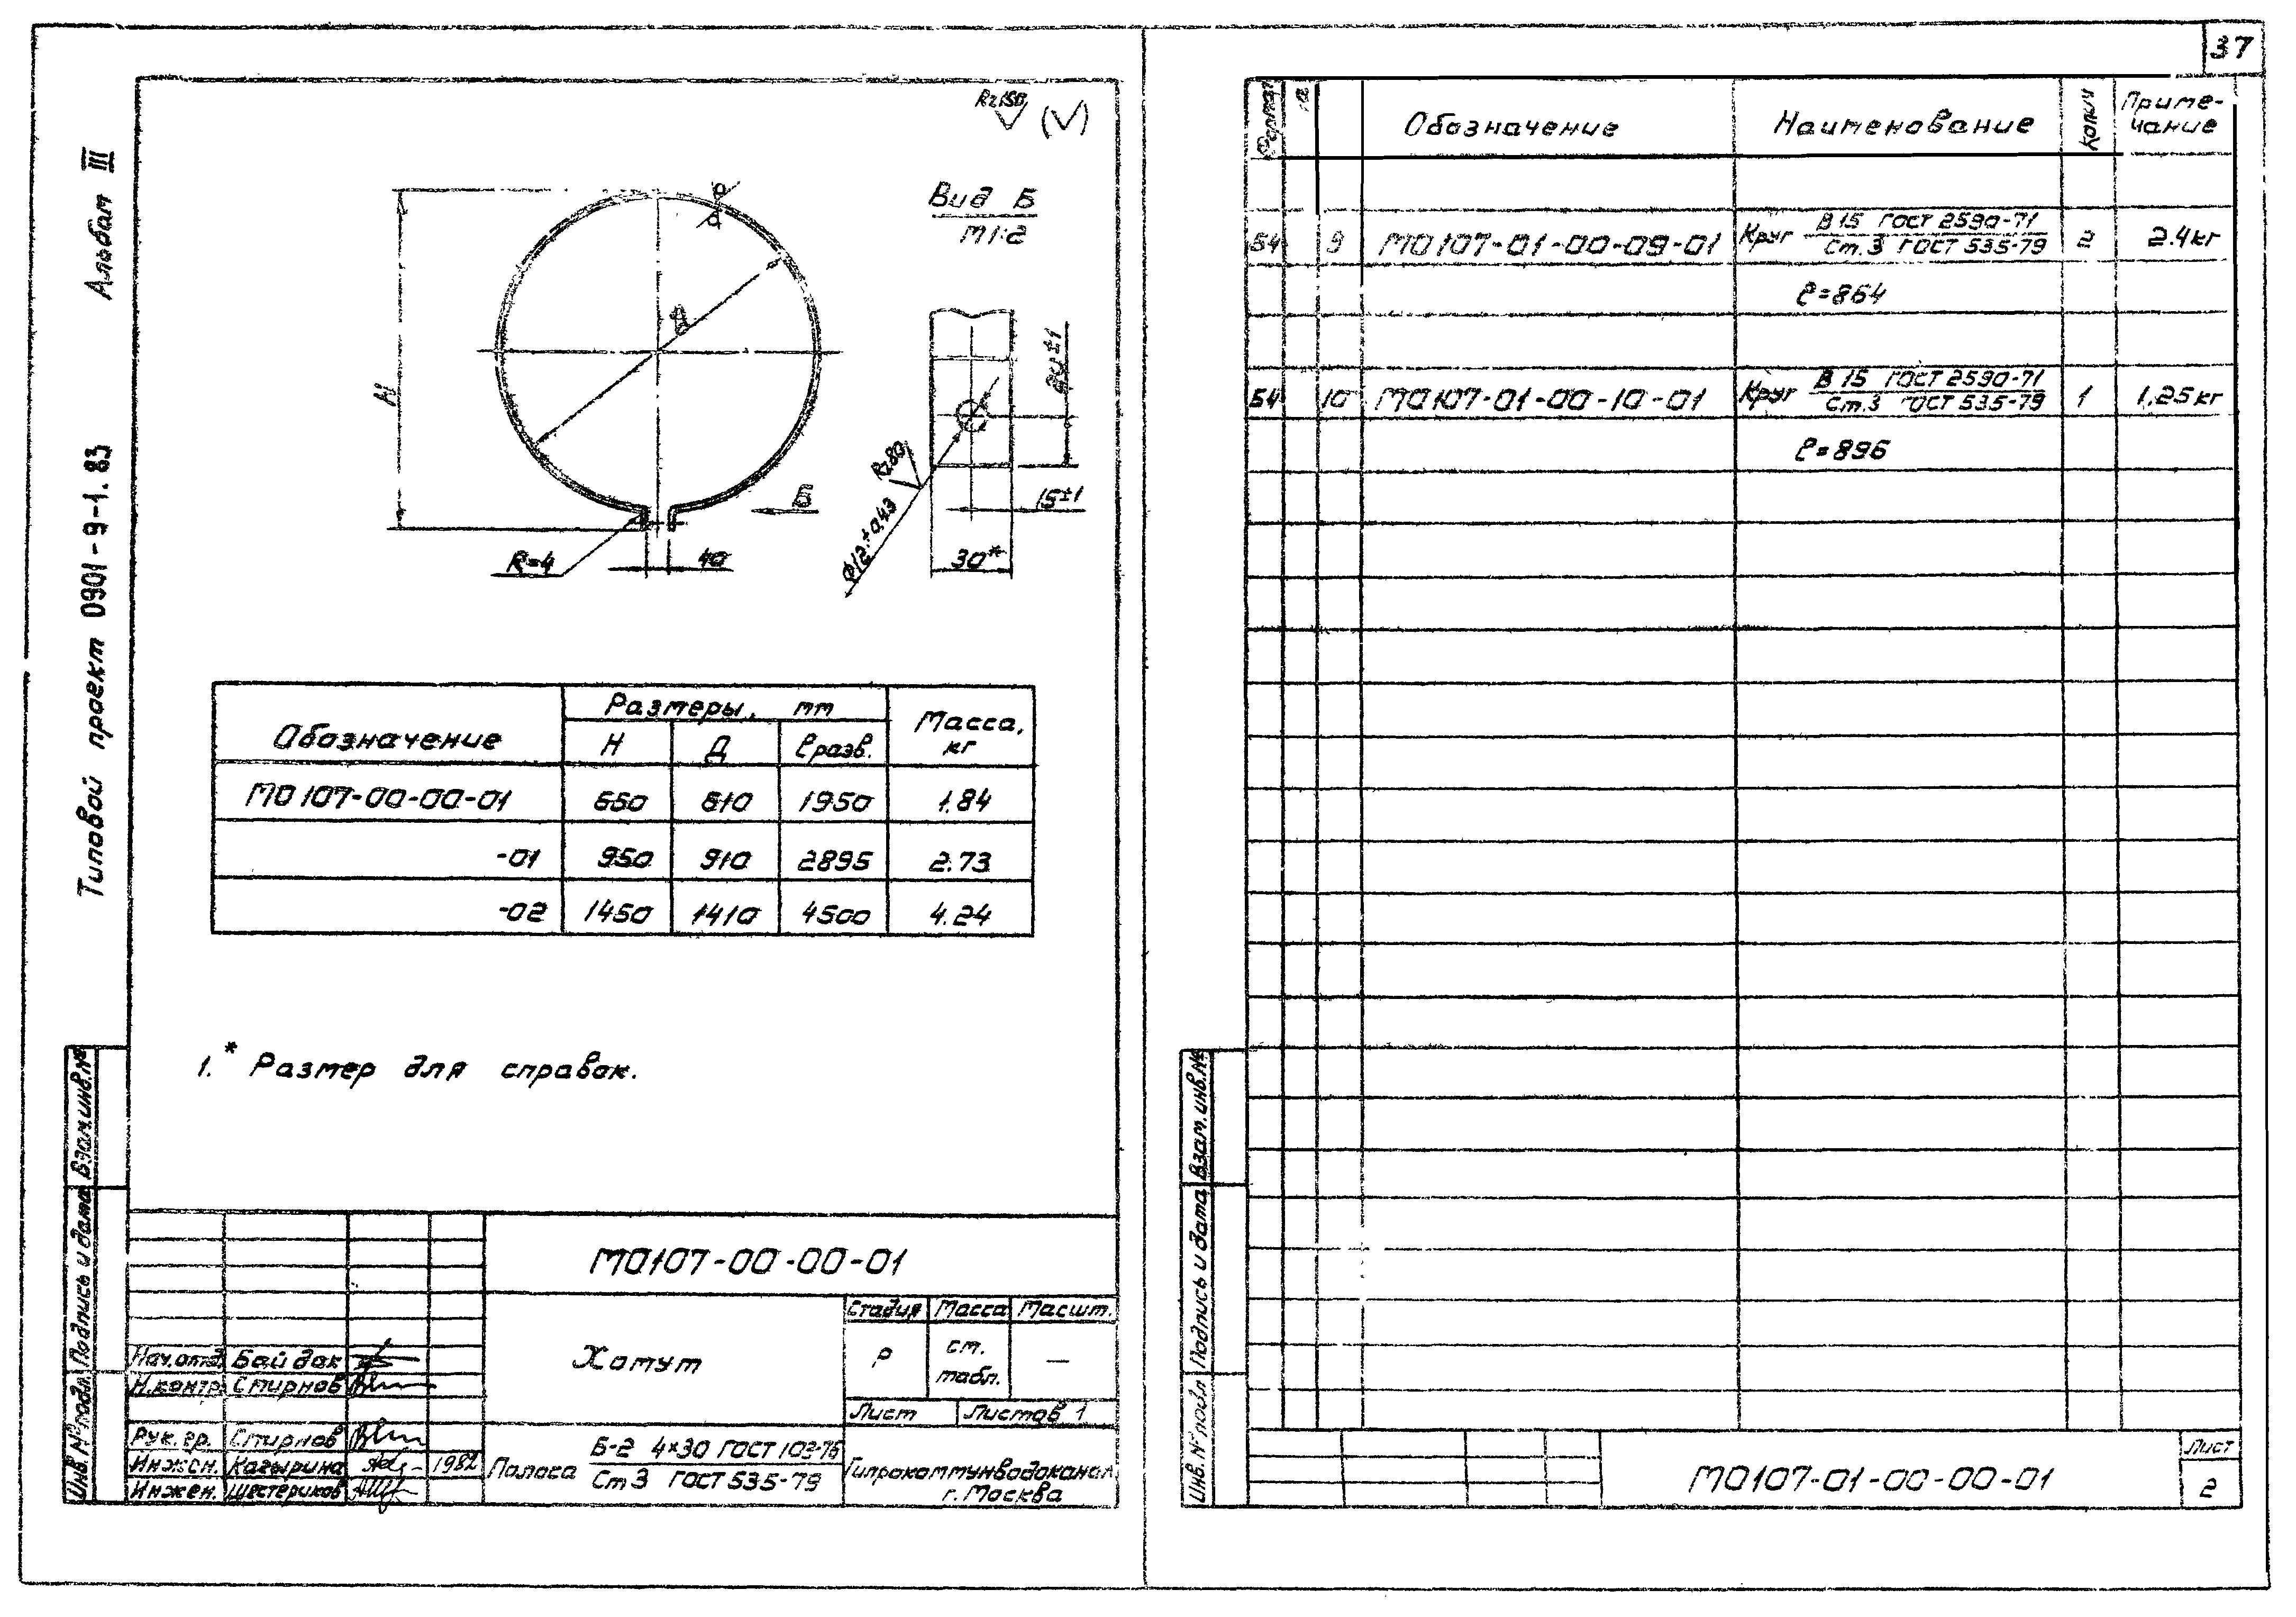 37
Альбом III
Типовой проект 0901-9-1.83
Rz150 (√)
Вид Б
М1:2
Н
Д
R=4
40
Б
24±1
15±1
30*
Rz80
Ф12±0,43
Обозначение
Размеры, мм
Масса, кг
Н Д ℓразв.
М0107-00-00-01 650 610 1950 1.84
-01 950 910 2895 2.73
-02 1450 1410 4500 4.24
1.* Размер для справок.
Взам.инв.№
Подпись и дата
Инв.№ подл.
М0107-00-00-01
Хомут
Стадия Масса Масшт.
Р ст. табл. —
Лист Листов 1
Нач.отд. Байдак
Н.контр. Смирнов
Рук.гр. Смирнов
Инжен. Кагырина 1982
Инжен. Шестериков
Полоса Б-2 4×30 ГОСТ 103-76
Ст3 ГОСТ 535-79
Гипрокоммунводоканал
г. Москва
Формат
Обозначение
Наименование
Колич
Приме-
чание
Б4 9 М0107-01-00-09-01 Круг В15 ГОСТ 2590-71 2 2.4кг
Ст.3 ГОСТ 535-79
ℓ=864
Б4 10 М0107-01-00-10-01 Круг В15 ГОСТ 2590-71 1 1.25кг
Ст.3 ГОСТ 535-79
ℓ=896
Взам.инв.№
Подпись и дата
Инв.№ подл
М0107-01-00-00-01
Лист
2